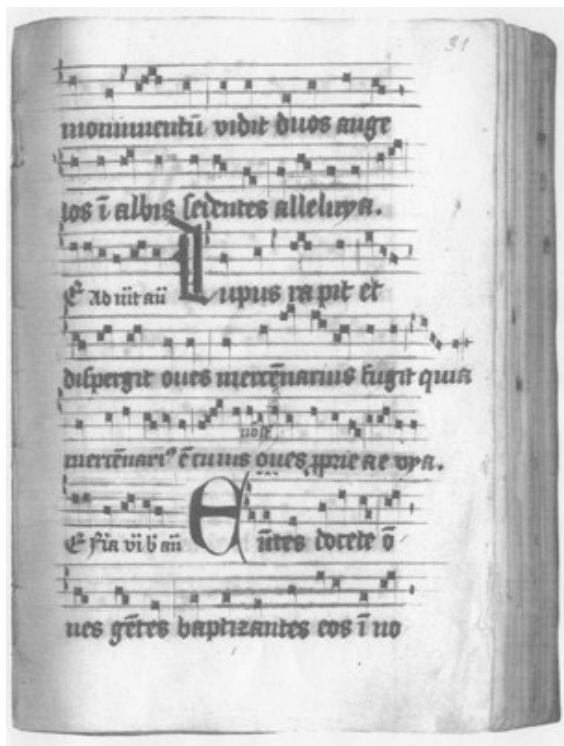 31
monumentū vidit duos ange
los ī albis sedentes alleluya.
Lupus rapit et
dispergit oues mercēnarius fugit quia
mercēnariꝰ ē cuius oues ꝓprie ae vya.
Eūtes docete ō
nes gētes baptizantes eos ī no